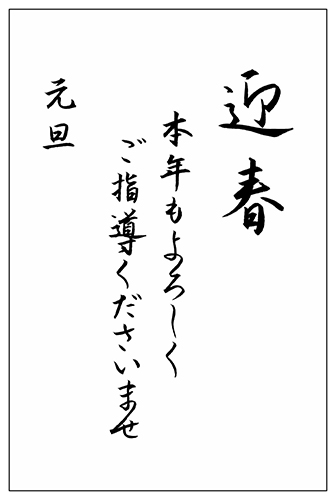 迎春
本年もよろしく
ご指導くださいませ
元旦